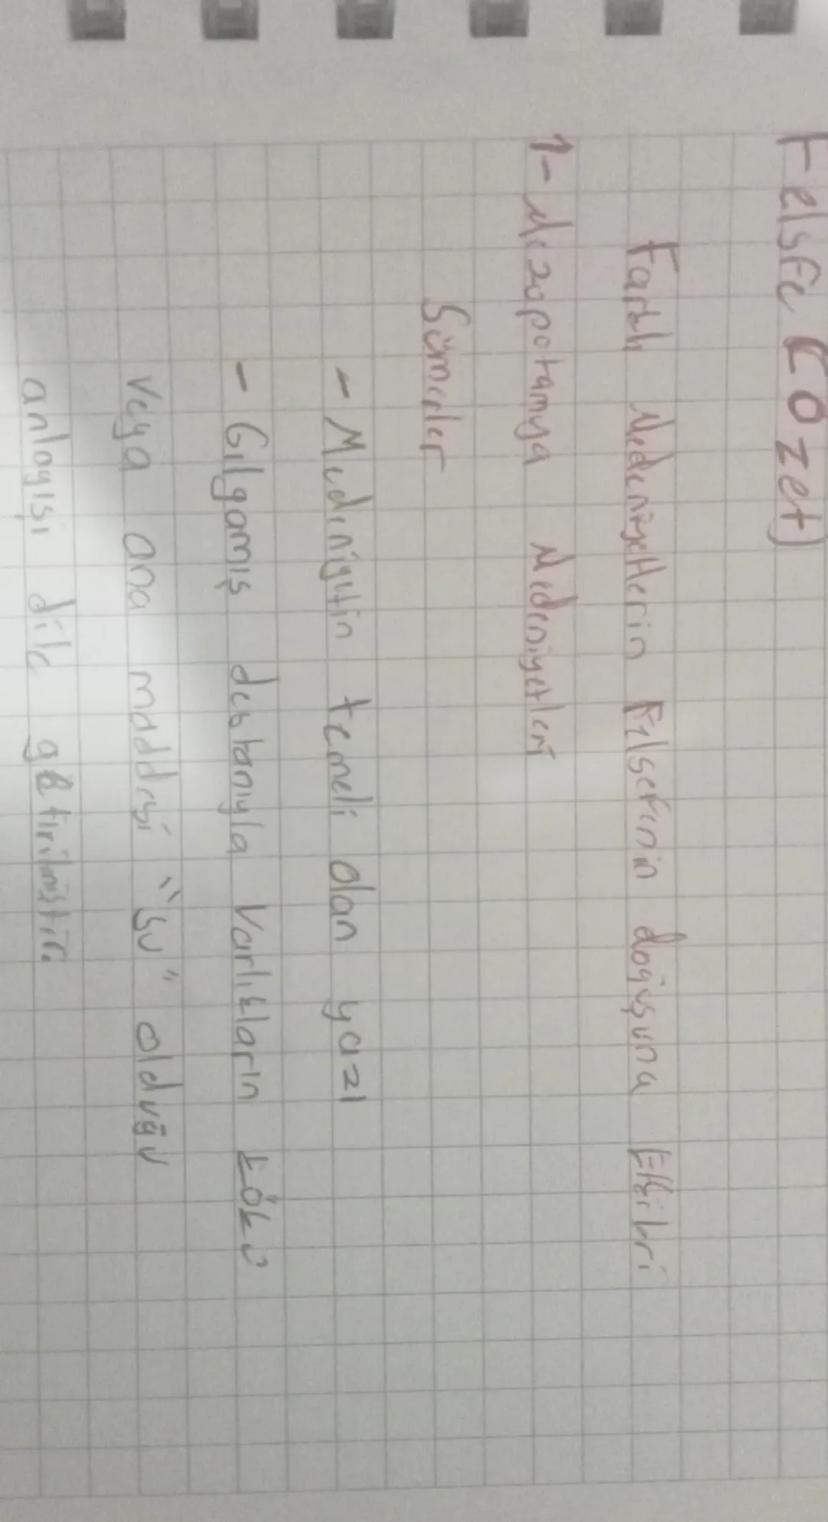 Felsefe (Özet)
Farklı Medeniyetlerin Felsefenin doğuşuna Etkileri
1- Mezopotamya Medeniyetleri
Sümerler
- Medeniyetin temeli olan yazı
- Gılgamış destanıyla varlıkların kökü
veya ana maddesi "su" olduğu
anlayışı dile getirilmiştir.